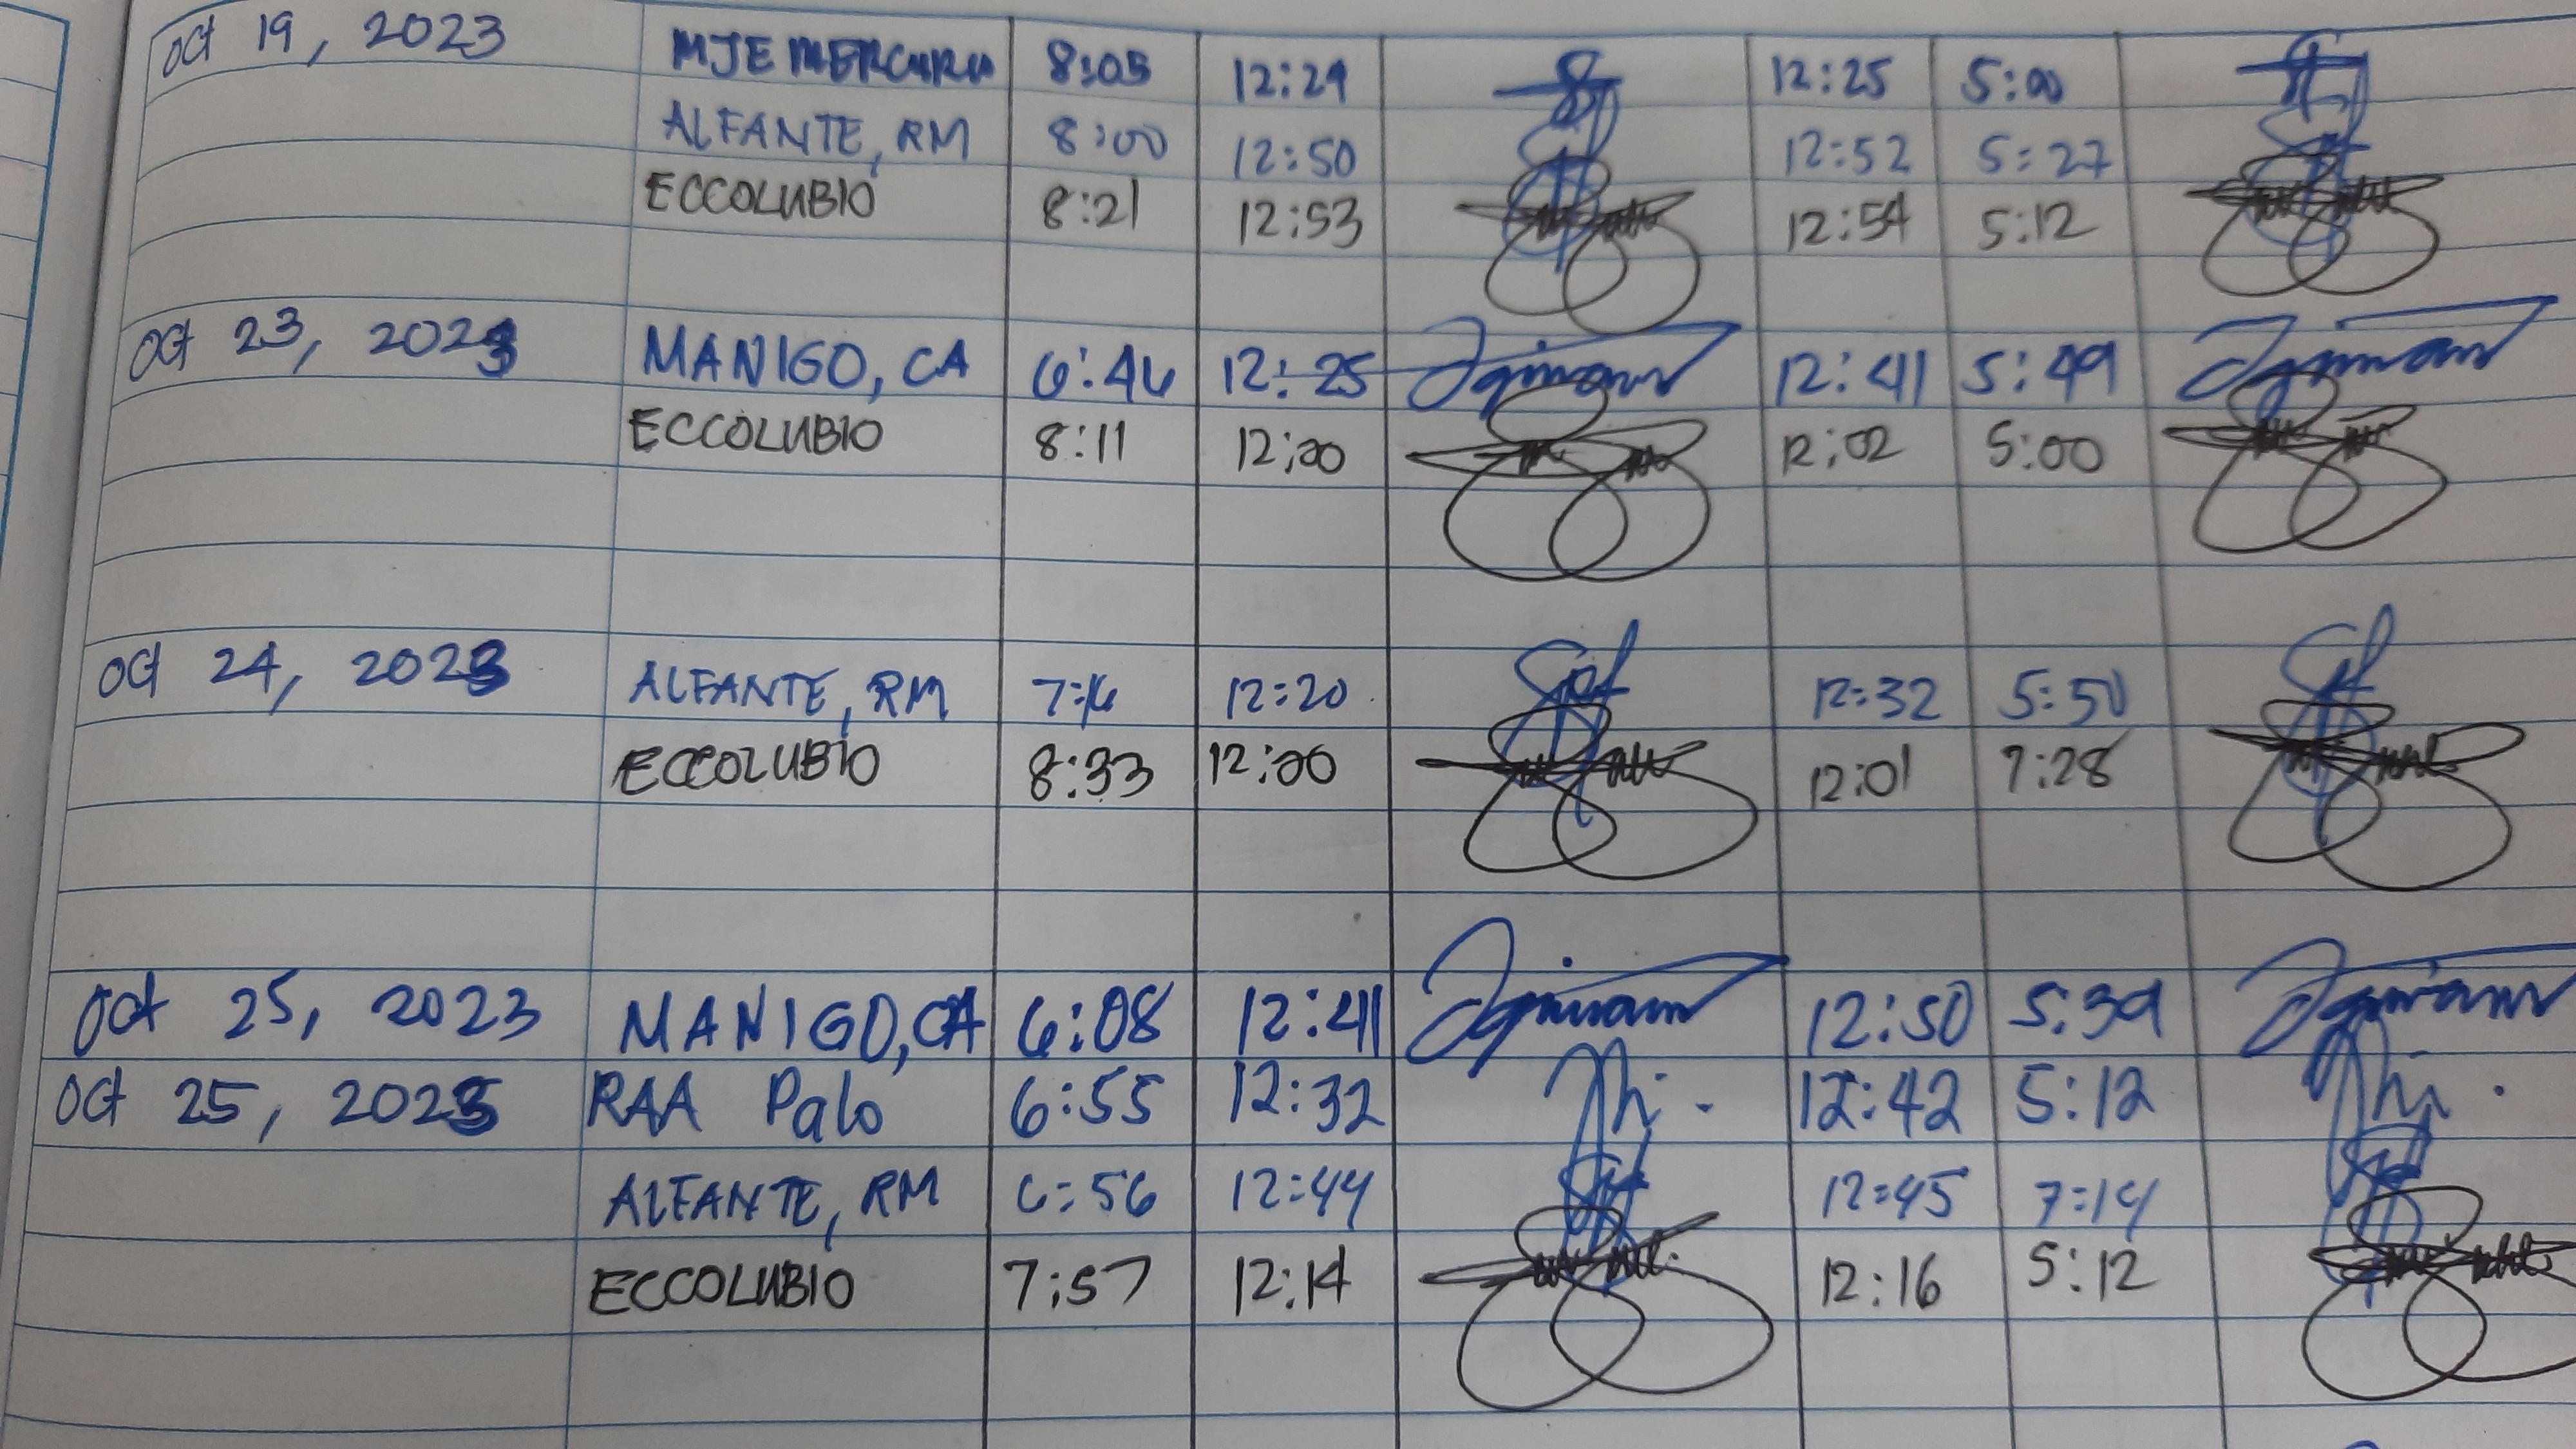 Oct 19, 2023 MJE MERCURIO 8:05 12:24 12:25 5:00
ALFANTE, RM 8:00 12:50 12:52 5:27
ECCOLUBIO 8:21 12:53 12:54 5:12
Oct 23, 2023 MANIGO, CA 6:46 12:25 12:41 5:49
ECCOLUBIO 8:11 12:00 12:02 5:00
Oct 24, 2023 ALFANTE, RM 7:16 12:20 12:32 5:50
ECCOLUBIO 8:33 12:00 12:01 7:28
Oct 25, 2023 MANIGO, CA 6:08 12:41 12:50 5:39
Oct 25, 2023 RAA Palo 6:55 12:32 12:42 5:12
ALFANTE, RM 6:56 12:44 12:45 7:14
ECCOLUBIO 7:57 12:14 12:16 5:12